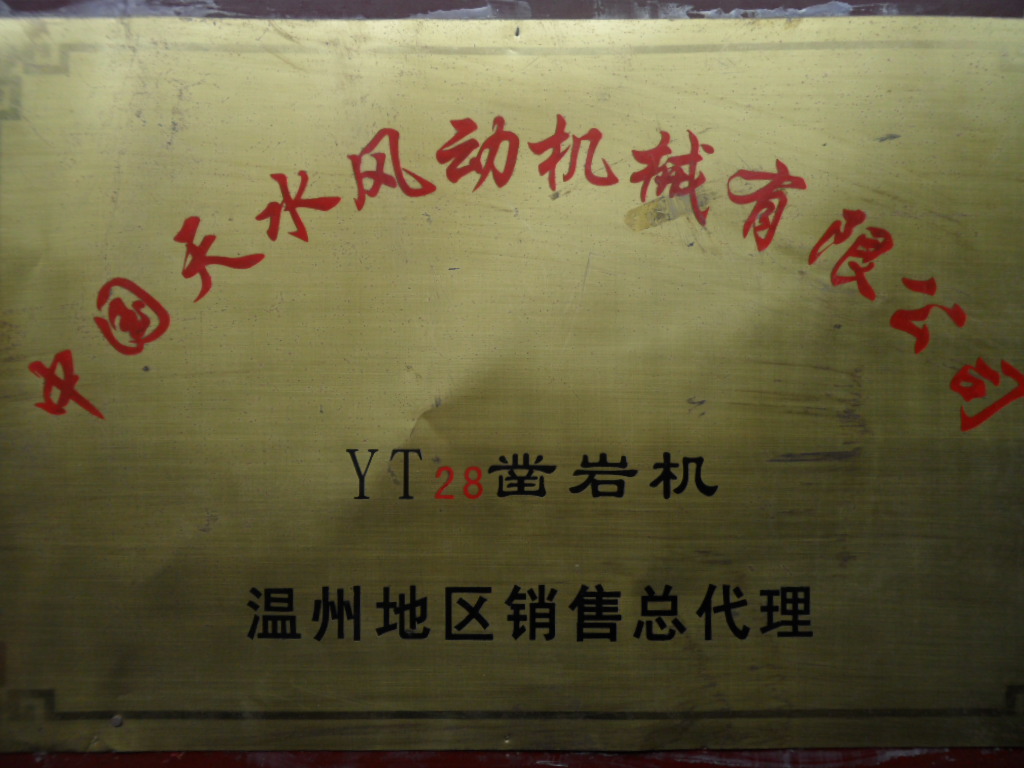 中国天水风动机械有限公司
YT28凿岩机
温州地区销售总代理